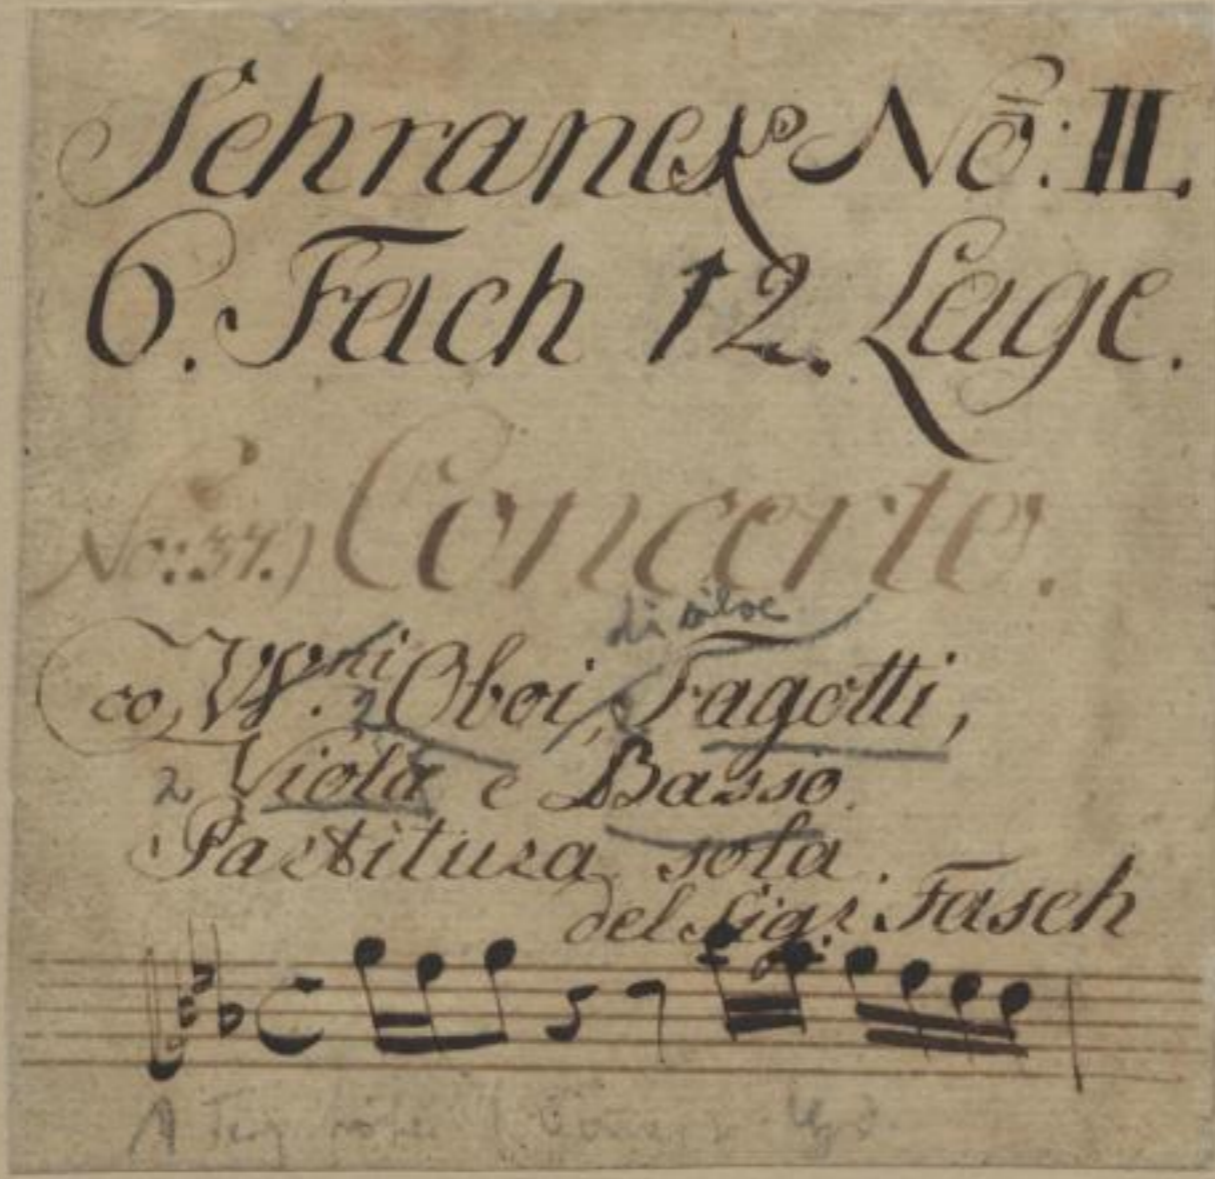 Schranck No: II.
6. Fach 12. Lage.
No: 37.) Concerto.
co VV.ni 2 Oboi, 2 Fagotti,
2 Viola e Basso.
Partitura sola.
del Sigr. Fasch